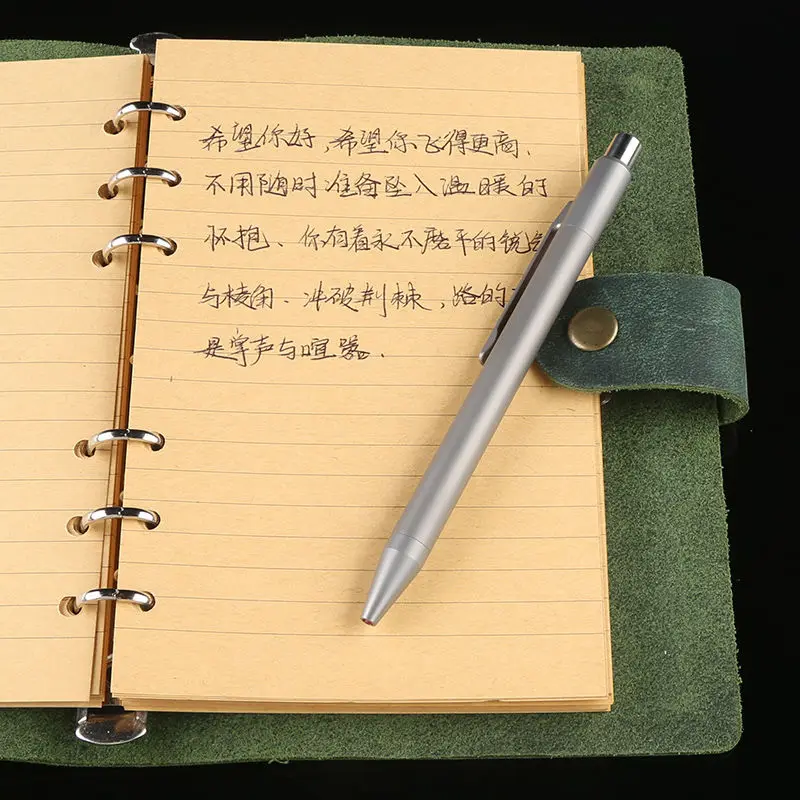 希望你好,希望你飞得更高、
不用随时准备坠入温暖的
怀抱、你有着永不磨平的锐
与棱角、冲破荆棘,路的
是掌声与喧嚣.